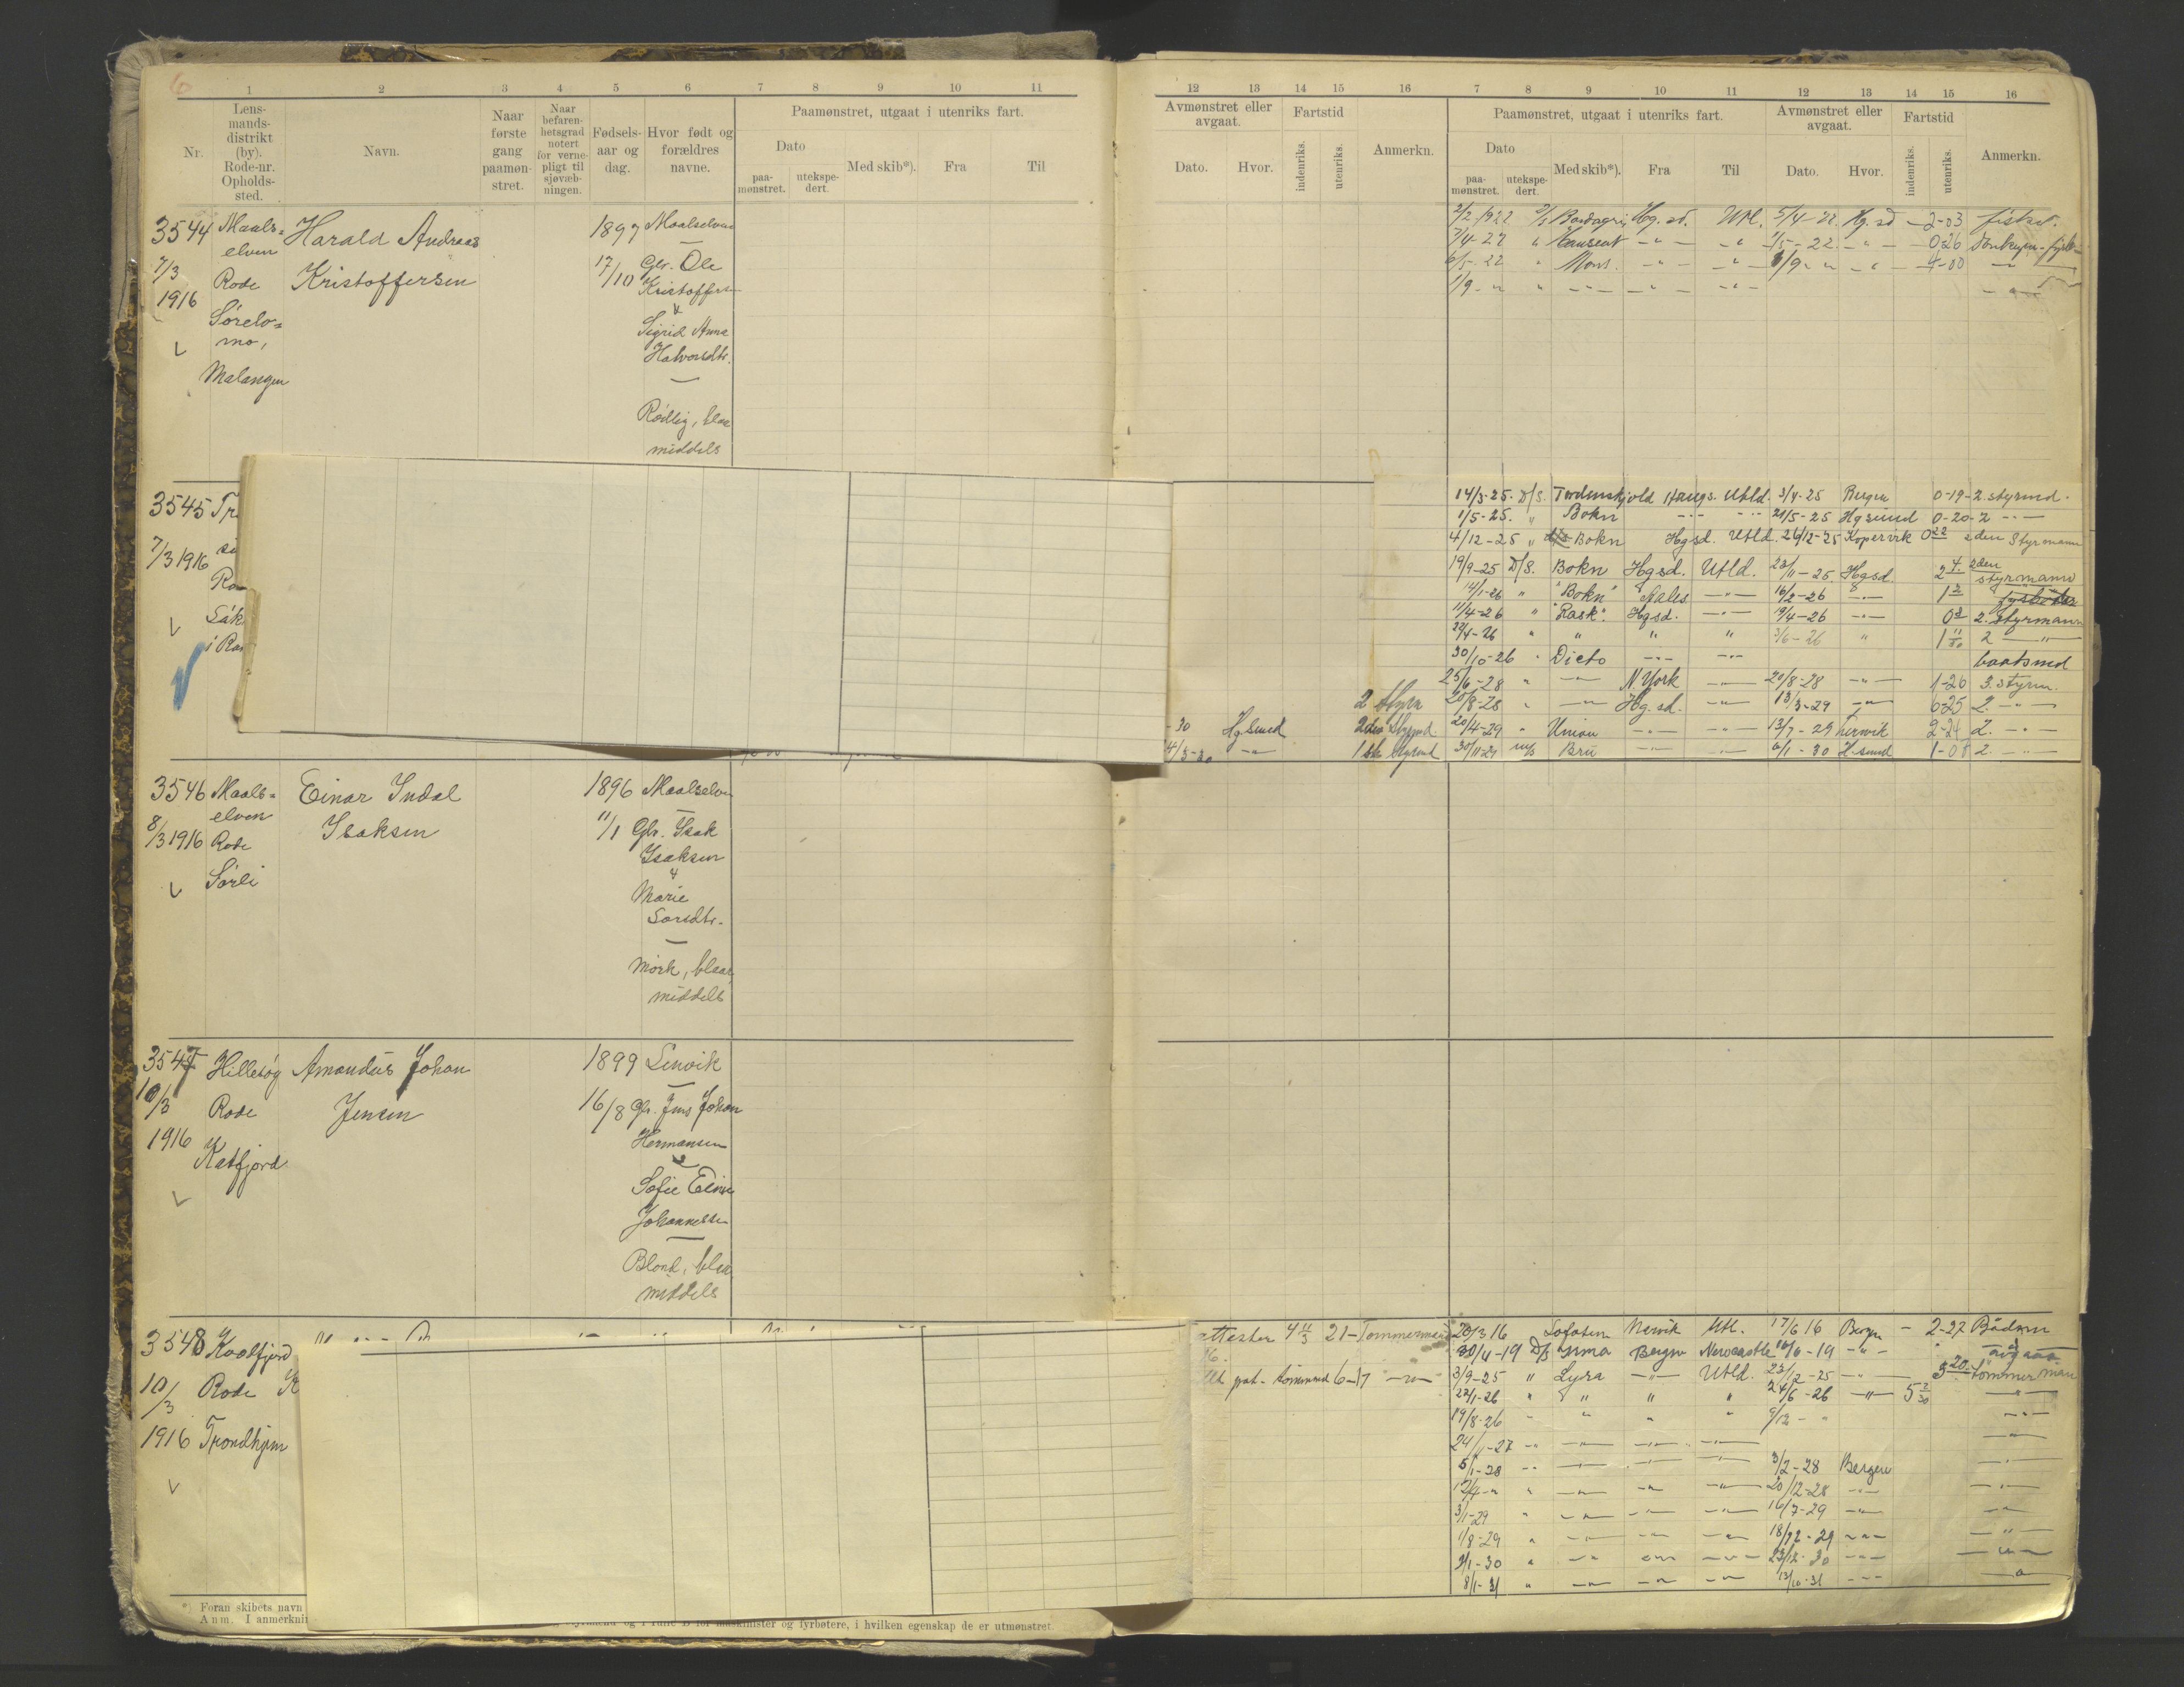 6
1 2 3 4 5 6 7 8 9 10 11
Nr.
Lens-
mands-
distrikt
(by).
Rode-nr.
Opholds-
sted.
Navn.
Naar
første
gang
paamøn-
stret.
Naar
befaren-
hetsgrad
notert
for verne-
pligt til
sjøvæb-
ningen.
Fødsels-
aar og
dag.
Hvor født og
forældres
navne.
Paamønstret, utgaat i utenriks fart.
Dato
paa-
mønstret.
utekspe-
dert.
Med skib*).
Fra
Til
3544
7/3
1916
Maals=
elven
Rode
Sørelv=
mo,
Malangen
Harald Andreas
Kristoffersen
1897
17/10
Maalselven
Gbr. Ole
Kristoffersen
&
Sigrid Anna
Halvorsdtr.
Rødlig, blaa
middels
3545
7/3 1916
3546
8/3 1916
Maals=
elven
Rode
Sørli
Einar Indal
Isaksen
1896
11/1
Maalselven
Gbr. Isak
Isaksen
&
Marie
Larsdtr.
Mørk, blaa,
middels
3547
10/3
1916
Hillesøy
Rode
Katfjord
Amandus Johan
Jensen
1899
16/8
Lenvik
Gbr. Jens Johan
Hermansen
&
Sofie Eline
Johannessen
Blond, blaa
middels
3548
10/3
1916
Kvalfjord
Rode
Trondhjem
Foran skibets navn
Anm. I anmerknin
og fyrbøtere, i hvilken egenskap de er utmønstret.
12 13 14 15 16 7 8 9 10 11 12 13 14 15 16
Avmønstret eller
avgaat.
Dato. Hvor.
Fartstid
indenriks.
utenriks.
Anmerkn.
Paamønstret, utgaat i utenriks fart.
Dato
paa-
mønstret.
utekspe-
dert.
Med skib*).
Fra
Til
Avmønstret eller
avgaat.
Dato. Hvor.
Fartstid
indenriks.
utenriks.
Anmerkn.
2/2-1922 Hg.sd. Utl. 5/4-22 Hg.sd - 2-03
7/4-22 " Haugent -"- -"- 1/5-22 -"- 0-26
6/5-22 " Mons. -"- -"- 1/9 " " -"- 4-00 -"-
1/9 - " " -"- -"- -"- -"-
14/3-25. D/S. Tordenskjold Haugs. Utld. 3/4-25 Bergen 0-19- 2. styrmd.
1/5-25. " Bokn -"- -"- 21/5-25 Hgsund 0-20- 2 -"-
4/12-25 " Bokn Hgsd. Utld. 26/12-25 Kopervik 0 22 2den Styrmann
19/9-25 D/S. Bokn Hgsd. Utld. 23/11-25. Hgsd. 2 4 2den
styrmann
14/1-26 " "Bokn" Aales -"- 16/2-26 -"- 1 2
11/4-26 " "Rask". Hgsd. -"- 19/4-26 -"- 2. Styrmann
22/4-26 " " " " 3/6-26 " 1 11/30 2 -"-
30/10-26 " Dicto -"- -"- baatsmd
25/6-28 " -"- N.York -"- 20/8-28 -"- 1-26 3. styrm.
2 Styrm
20/8-28 " -"- Hg.sd. -"- 13/3-29 -"- 6-25 2. -"-
-30 Hgsund 2den Styrmd.
20/4-29 " Union -"- -"- 13/7-29 2-24 2. -"-
4/3-30 -"- 1ste Styrmd
30/11-29 m/s Bru -"- -"- 6/1-30 H.sund 1-08 2. -"-
attester 4 11/3 21 - Tømmermand
20/3 16 Lofoten Narvik Utl. 17/6 16 Bergen - 2-27 Bådsm
30/4-19 D/S Irma Bergen Newcastle 10/6-19 -"- avgaat
pat. tømmermd 6-17 -"-
3/9-25 " Lyra -"- Utld. 23/12-25 -"- 3 20 tømmerman
22/1-26 " " " " 24/6-26 -"- 5 2/30 -"-
19/8-26 " " " " 9/12 - " -"-
24/1-27 " -"- -"- -"- -"-
5/1-28 " -"- -"- -"- 3/2-28 Bergen -"-
12/4-" " -"- -"- -"- 20/12-28 -"- -"-
3/1-29 " -"- -"- -"- 16/7-29 -"- -"-
1/8-29 " -"- -"- -"- 18/12-29 -"- -"-
2/1-30 " -"- -"- -"- 23/12-30 -"- -"-
8/1-31 " -"- -"- -"- 13/10-31 -"- -"-